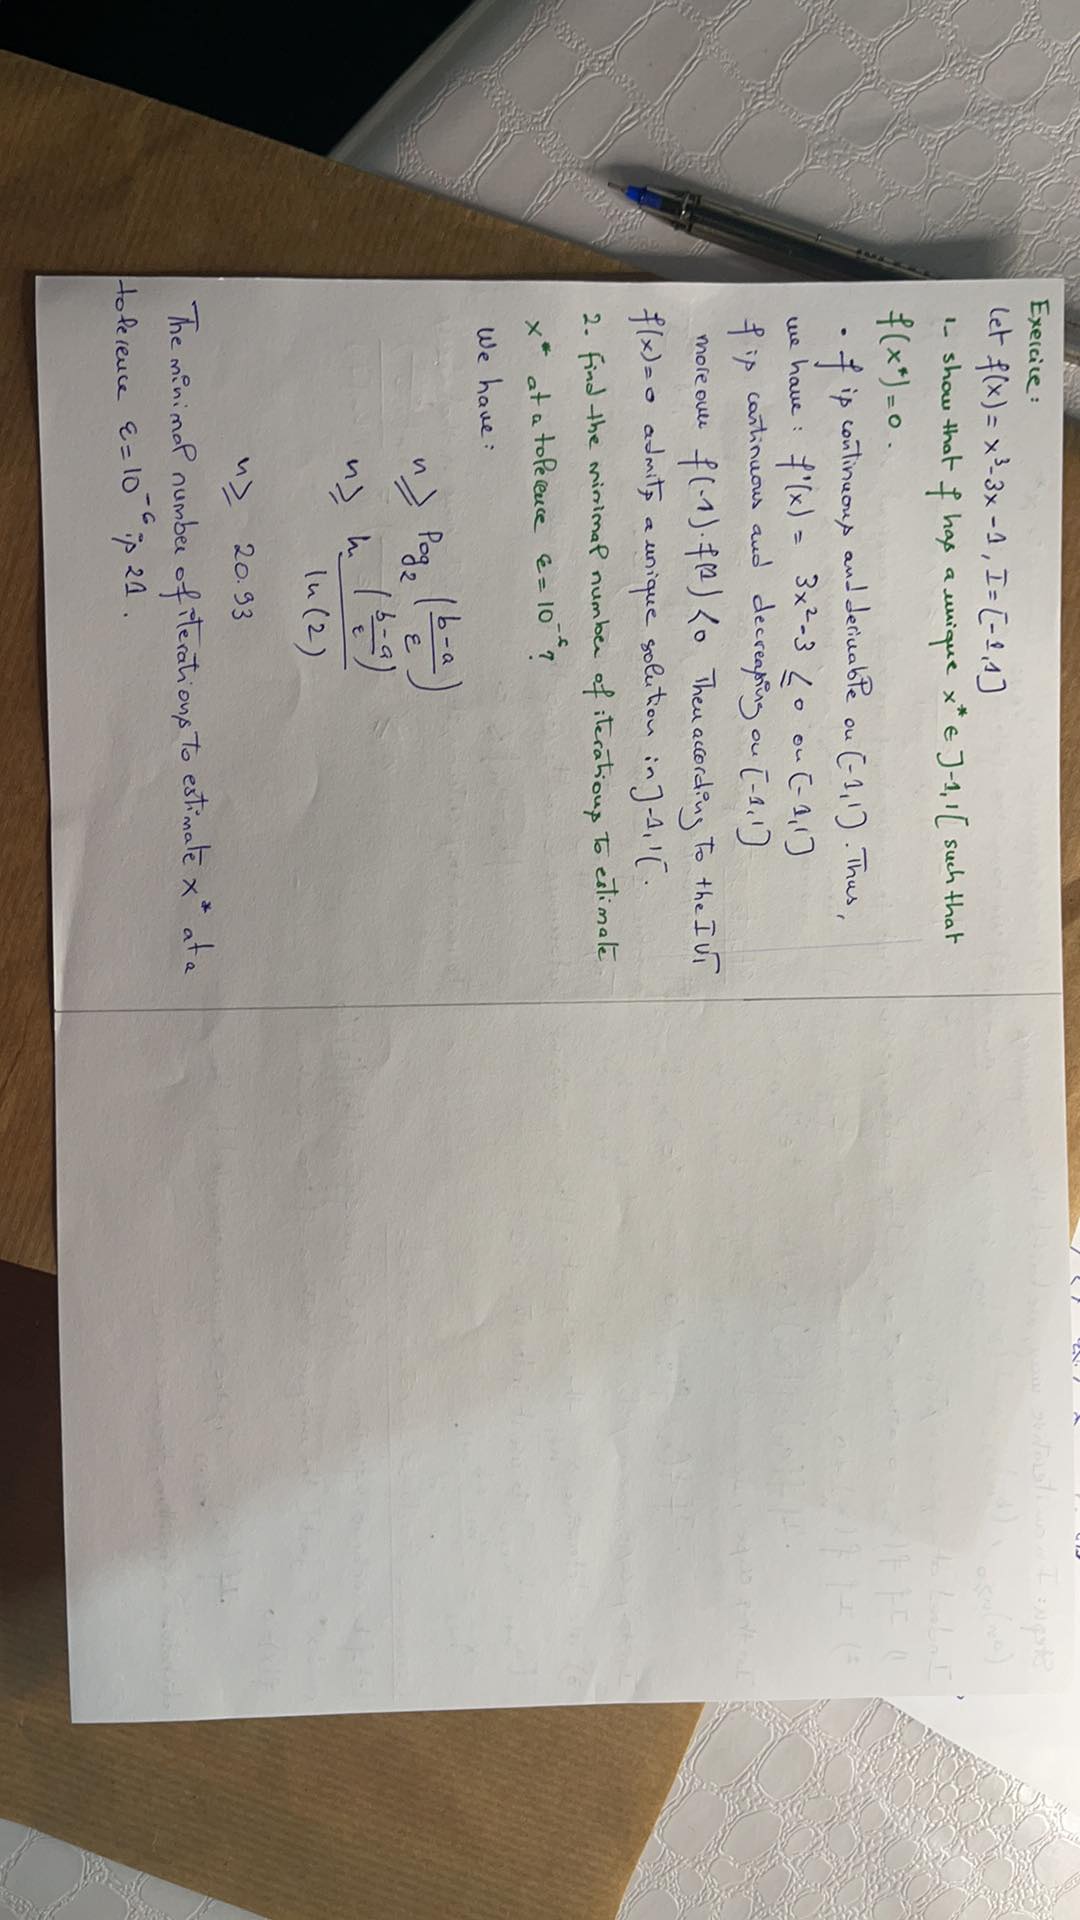 Exercice:
Let f(x) = x³-3x-1, I = [-1,1]
1- show that f has a unique x* ∈ ]-1,1[ such that
f(x*)=0.
• f is continuous and derivable on [-1,1]. Thus,
we have: f'(x) = 3x²-3 ≤ 0 on [-1,1]
f is continuous and decreasing on [-1,1]
moreover f(-1).f(1) <0 Then according to the IVT
f(x)=0 admits a unique solution in ]-1,1[.
2- find the minimal number of iterations to estimate
x* at a tolerence ε = 10⁻⁶?
We have:
n ≥ log₂ ((b-a)/ε)
n ≥ ln ((b-a)/ε) / ln(2)
n ≥ 20.93
The minimal number of iterations to estimate x* at a
tolerence ε = 10⁻⁶ is 21.